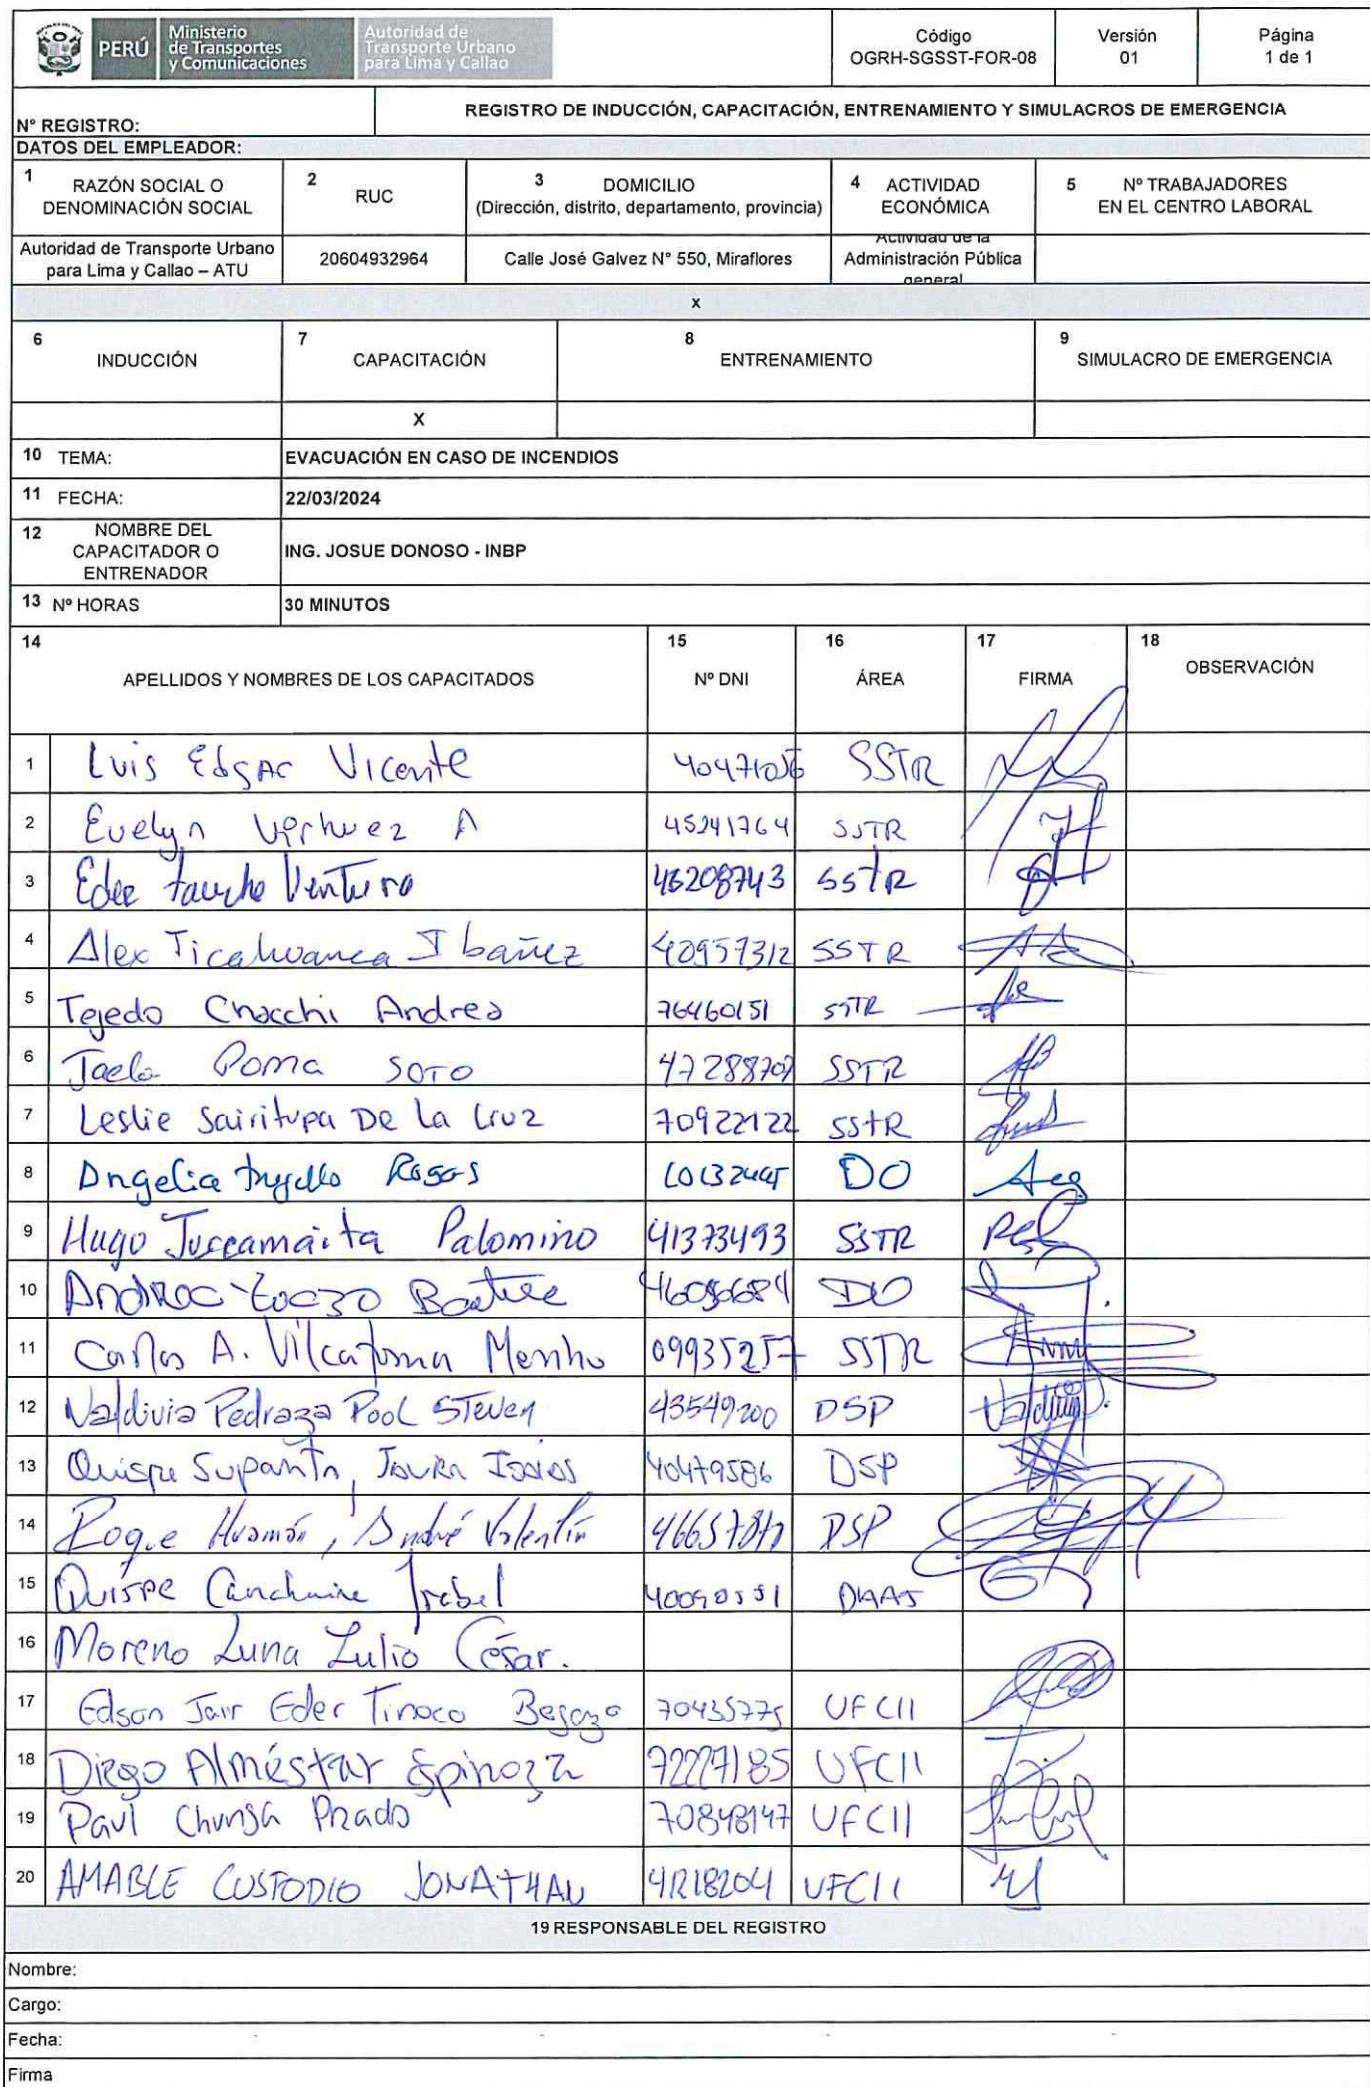 PERÚ Ministerio de Transportes y Comunicaciones Autoridad de Transporte Urbano para Lima y Callao
Código OGRH-SGSST-FOR-08
Versión 01
Página 1 de 1
N° REGISTRO:
REGISTRO DE INDUCCIÓN, CAPACITACIÓN, ENTRENAMIENTO Y SIMULACROS DE EMERGENCIA
DATOS DEL EMPLEADOR:
1 RAZÓN SOCIAL O DENOMINACIÓN SOCIAL
2 RUC
3 DOMICILIO (Dirección, distrito, departamento, provincia)
4 ACTIVIDAD ECONÓMICA
5 Nº TRABAJADORES EN EL CENTRO LABORAL
Autoridad de Transporte Urbano para Lima y Callao – ATU
20604932964
Calle José Galvez N° 550, Miraflores
Actividad de la Administración Pública general
x
6 INDUCCIÓN
7 CAPACITACIÓN
8 ENTRENAMIENTO
9 SIMULACRO DE EMERGENCIA
X
10 TEMA: EVACUACIÓN EN CASO DE INCENDIOS
11 FECHA: 22/03/2024
12 NOMBRE DEL CAPACITADOR O ENTRENADOR ING. JOSUE DONOSO - INBP
13 Nº HORAS 30 MINUTOS
14 APELLIDOS Y NOMBRES DE LOS CAPACITADOS
15 Nº DNI
16 ÁREA
17 FIRMA
18 OBSERVACIÓN
1 Luis Edgar Vicente 40471056 SSTR
2 Evelyn A 45241764 SSTR
3 Eder Ventura 46208743 SSTR
4 Alex Ticahuanca Ibañez 40957312 SSTR
5 Tejedo Chacchi Andrea 76460151 SSTR
6 Poma Soto SSTR
7 Leslie Sairitupa De La Cruz 70922122 SSTR
8 Angelica Trujillo Rosas DO
9 Hugo Juscamaita Palomino 41373493 SSTR
10 DO
11 Carlos A. Vilcatoma Menho 09935257 SSTR
12 Valdivia Pedraza Pool Steven 43549200 DSP
13 Quispe 40479586 DSP
14 Roque Huamán, André Valentín DSP
15 Quispe Isabel DAAS
16 Moreno Luna Julio César.
17 Edson Jair Eder Tinoco Begazo 70435775 UFCII
18 Diego Almestar Espinoza 72227185 UFCII
19 Paul Chunga Prado 70848147 UFCII
20 AMABLE CUSTODIO JONATHAN UFCII
19 RESPONSABLE DEL REGISTRO
Nombre:
Cargo:
Fecha:
Firma